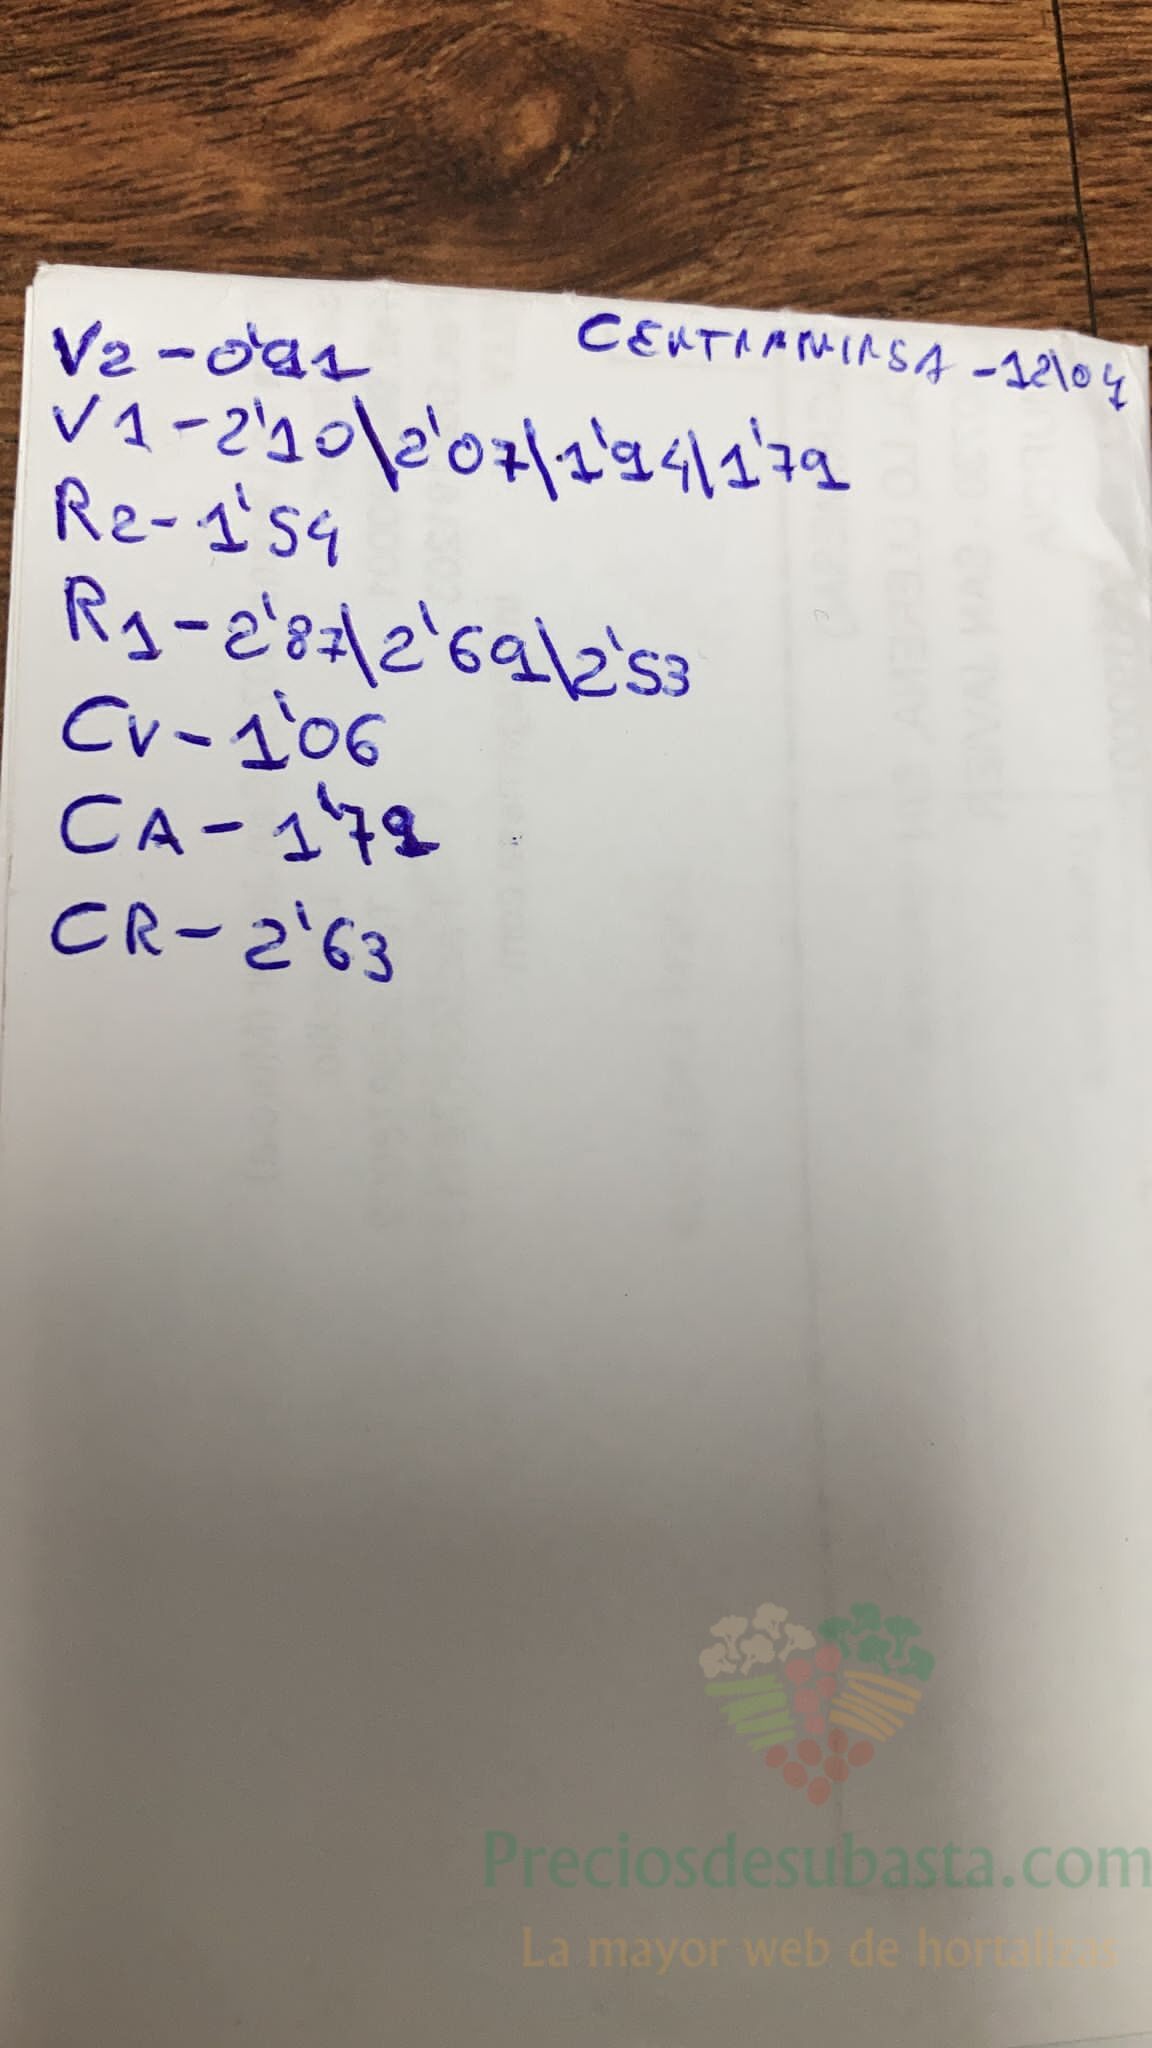 CENTRAMIRSA -12\04
V2 - 0'91
V1 - 2'10\2'07\1'94\1'79
R2 - 1'54
R1 - 2'87\2'69\2'53
CV - 1'06
CA - 1'79
CR - 2'63
Preciosdesubasta.com
La mayor web de hortalizas